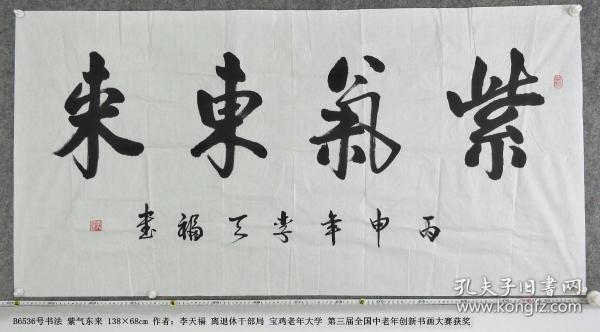 紫氣東来
丙申年李天福书
孔夫子旧书网
www.kongfz.com
B6536号书法 紫气东来 138×68cm 作者：李天福 离退休干部局 宝鸡老年大学 第三届全国中老年创新书画大赛获奖